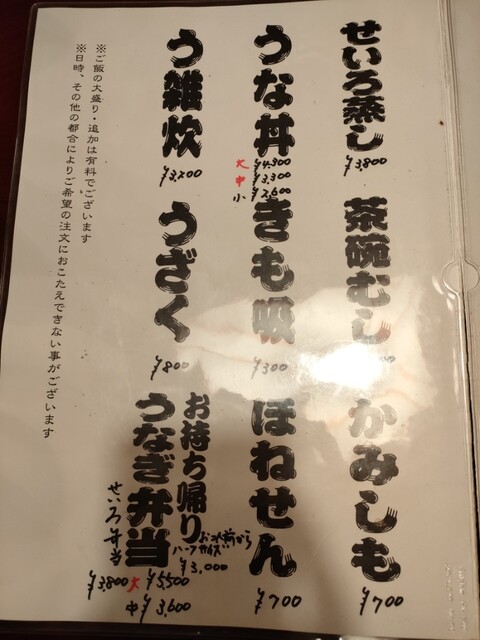 せいろ蒸し
¥3,800
茶碗むし
かみしも
¥700
うな丼
大 ¥4,300
中 ¥3,300
小 ¥2,600
きも吸
¥300
ほねせん
¥700
う雑炊
¥3,200
うざく
¥800
お持ち帰り
うなぎ弁当
¥3,000
大 ¥5,500
中 ¥3,600
せいろ弁当
¥3,800
※ご飯の大盛り・追加は有料でございます
※日時、その他の都合によりご希望の注文におこたえできない事がございます